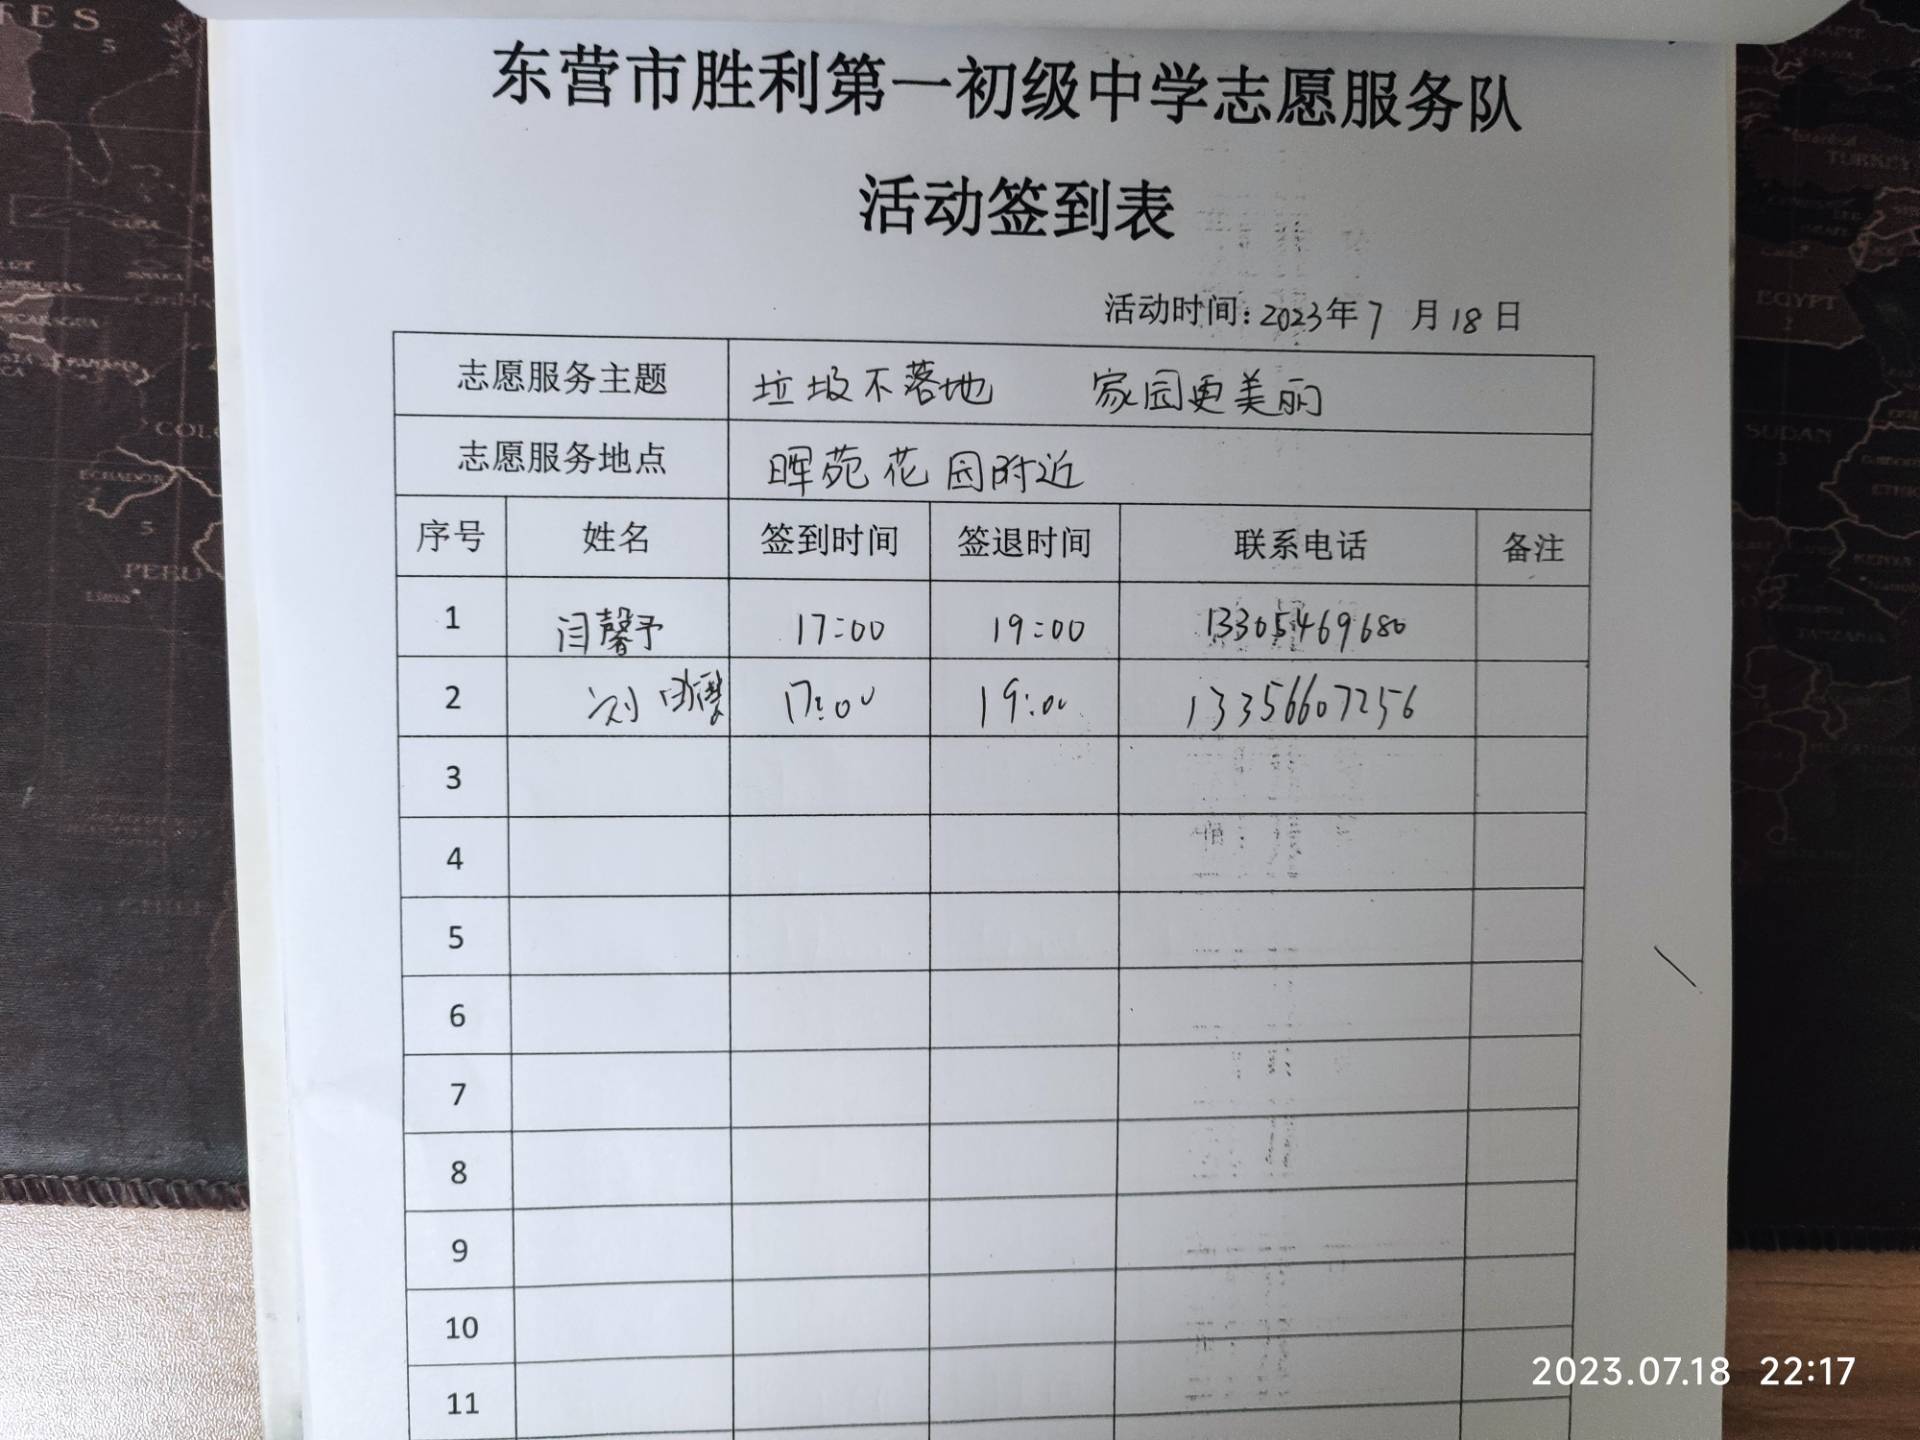 东营市胜利第一初级中学志愿服务队
活动签到表
活动时间:2023年7月18日
志愿服务主题 垃圾不落地 家园更美丽
志愿服务地点 晖苑花园附近
序号 姓名 签到时间 签退时间 联系电话 备注
1 闫馨予 17:00 19:00 13305469680
2 刘 17:00 19:00 13356607256
3
4
5
6
7
8
9
10
11
2023.07.18 22:17
RES
CUBA
COL
ECUADOR
PERU
CHILE
TURKEY
EGYPT
SUDAN
KENYA
TANZANIA